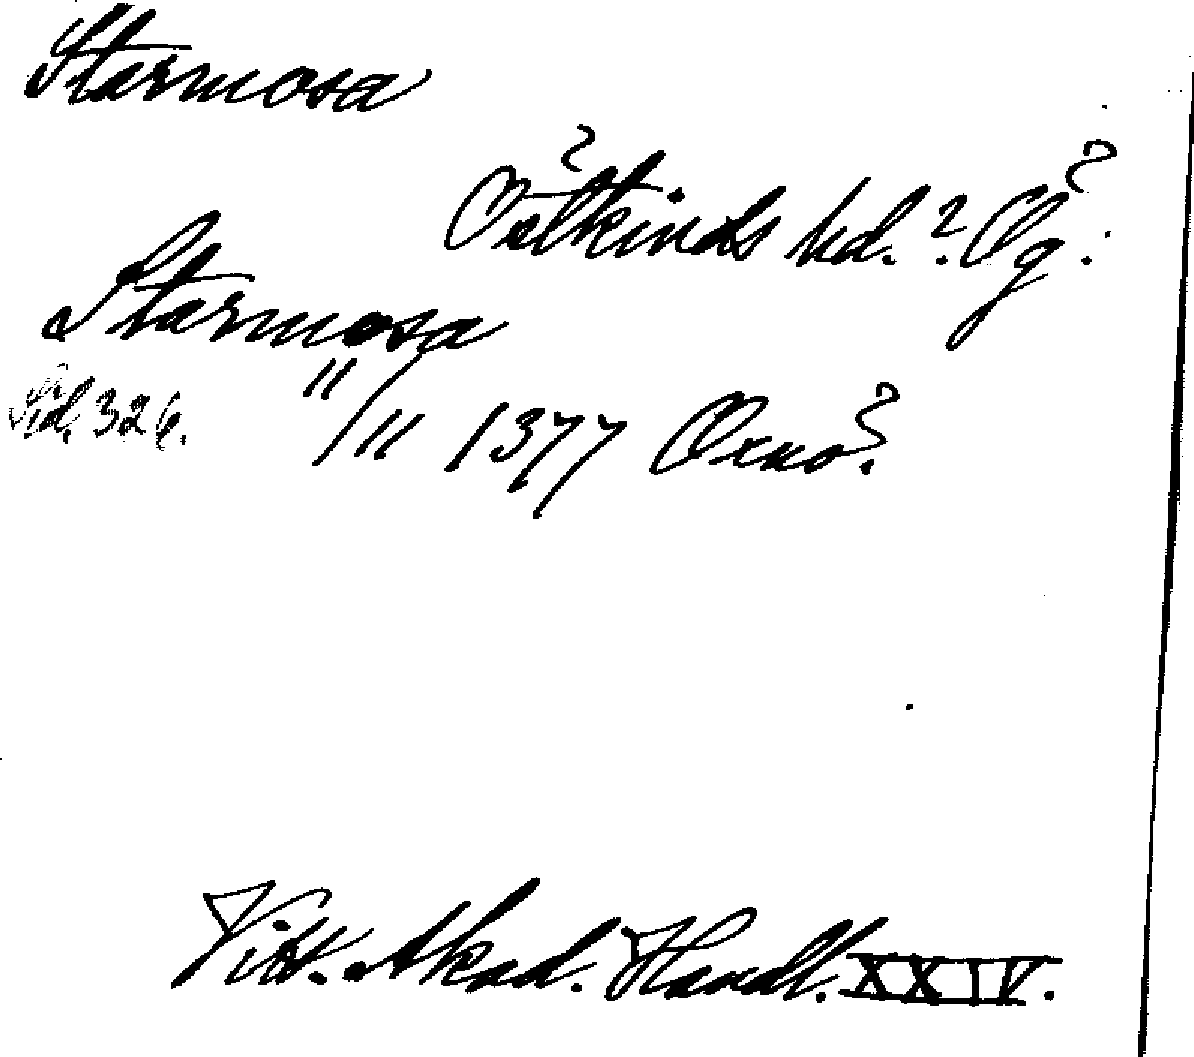 Starmosa
Östkinds hd. ? Ög.
Starmosa
Sid. 326. 11/11 1377 Oxnö.
Vitt. Akad. Handl. XXIV.